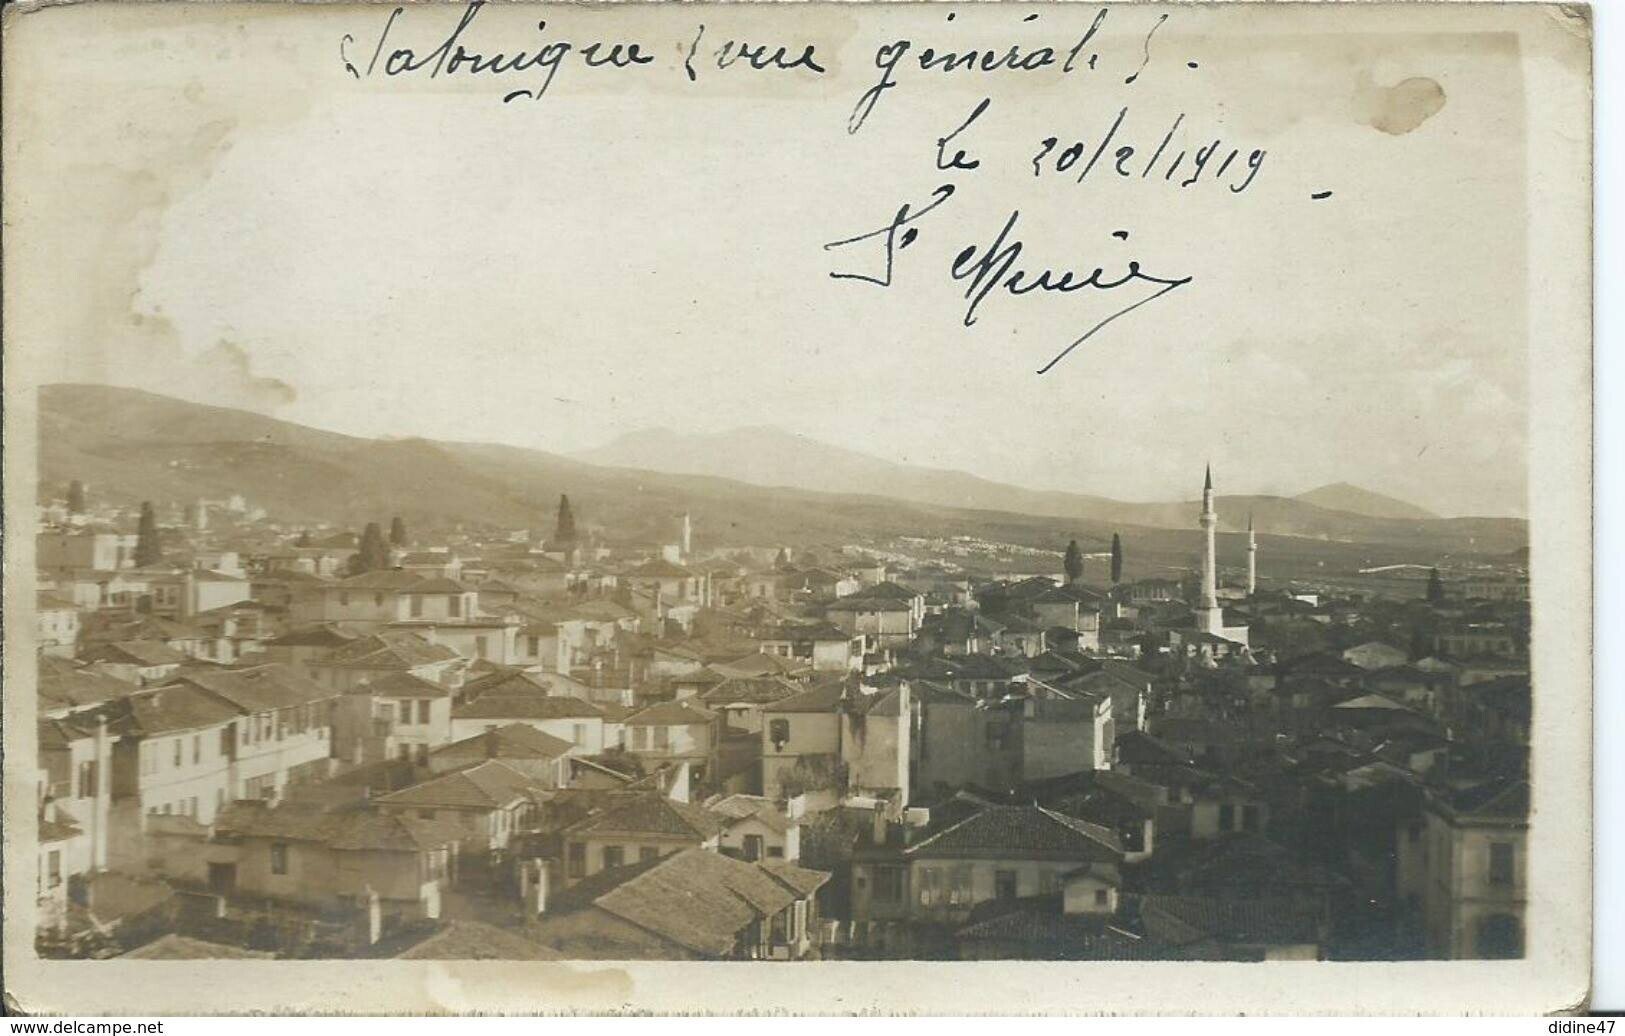 Salonique (vue générale).
Le 20/2/1919.
www.delcampe.net
didine47